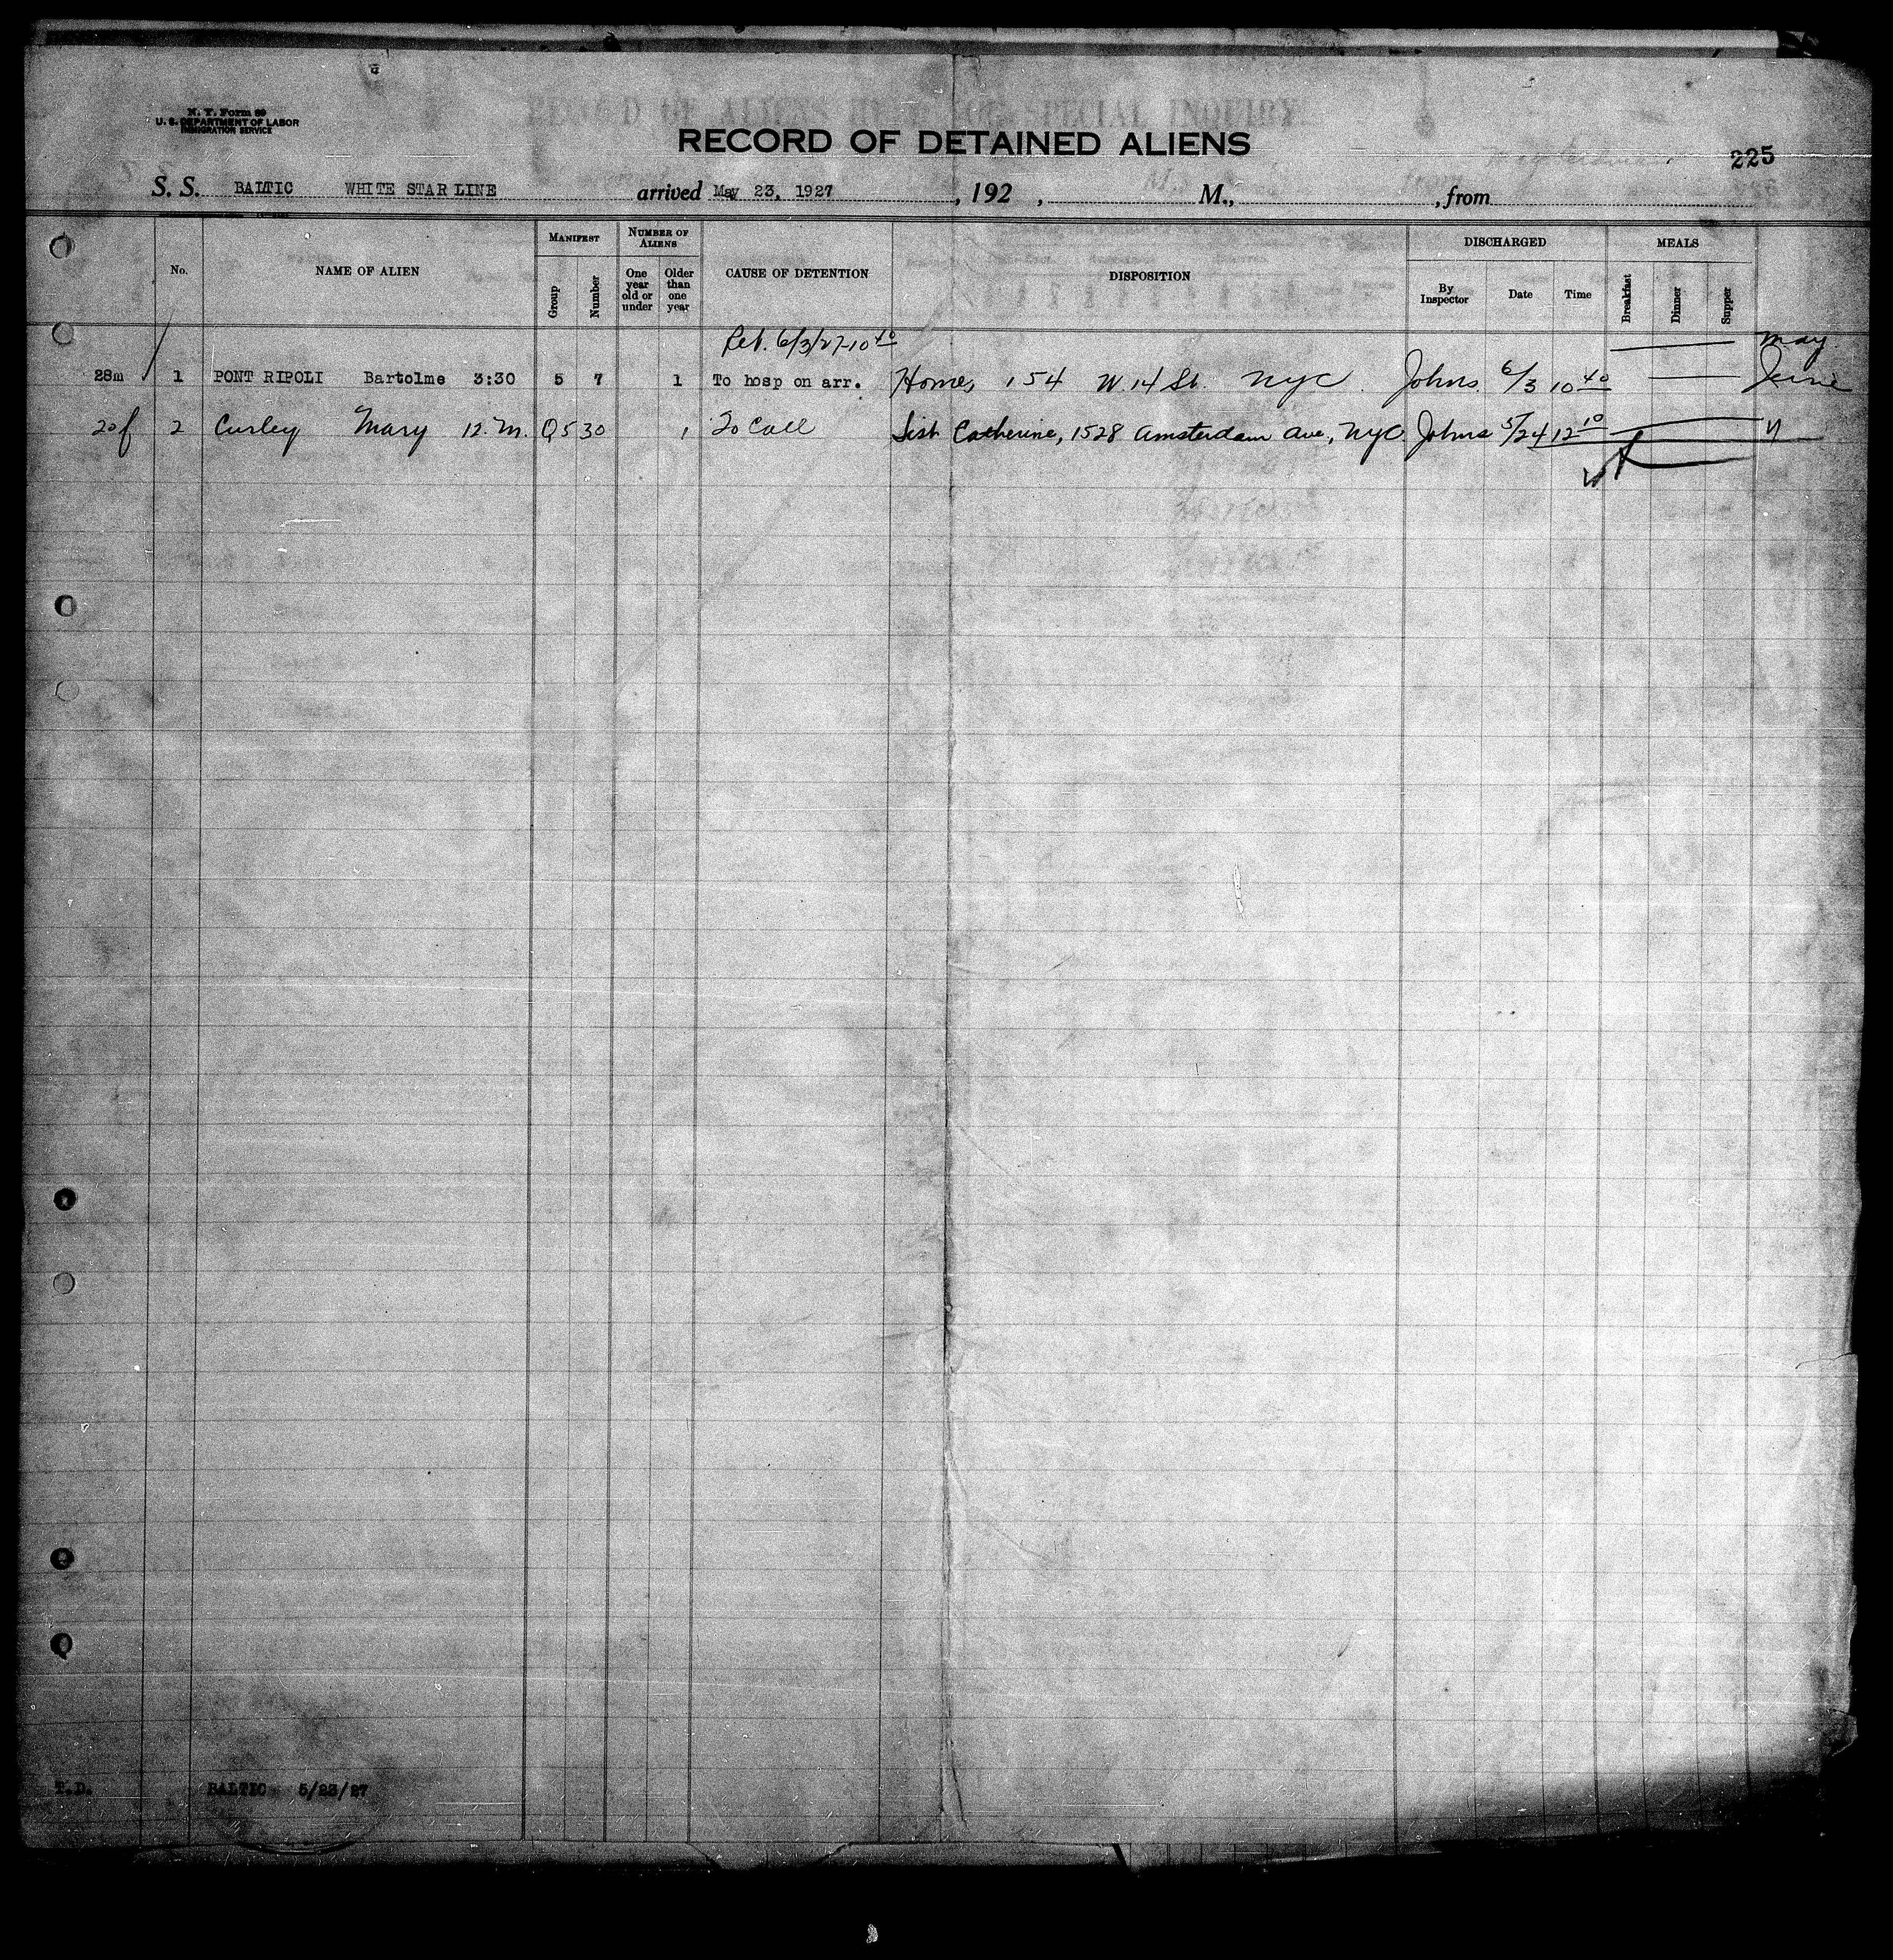 N. Y. Form 89
U. S. DEPARTMENT OF LABOR
IMMIGRATION SERVICE
RECORD OF DETAINED ALIENS
225
S. S. BALTIC WHITE STAR LINE arrived May 23, 1927, 192 , M., , from
No. NAME OF ALIEN MANIFEST Group Number NUMBER OF ALIENS One year old or under Older than one year CAUSE OF DETENTION DISPOSITION DISCHARGED By Inspector Date Time MEALS Breakfast Dinner Supper
Ret. 6/3/27-10 40 May
28m 1 PONT RIPOLI Bartolme 3:30 5 7 1 To hosp on arr. Home, 154 W. 14 St. NYC. Johns 6/3 10 40 June
20f 2 Curley Mary 12. M. Q5 30 1 To Call Sist Catherine, 1528 Amsterdam Ave., NYC Johns 5/24 12 10 "
T.D. BALTIC 5/23/27